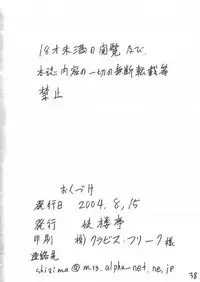 18才未満の閲覧及び
本誌内容の一切の無断転載等
禁止
おくづけ
発行日 2004.8.15
発行 侠樗亭
印刷 ㈱クラビス・フリーク様
連絡先
shizima@m13.alpha-net.ne.jp
38